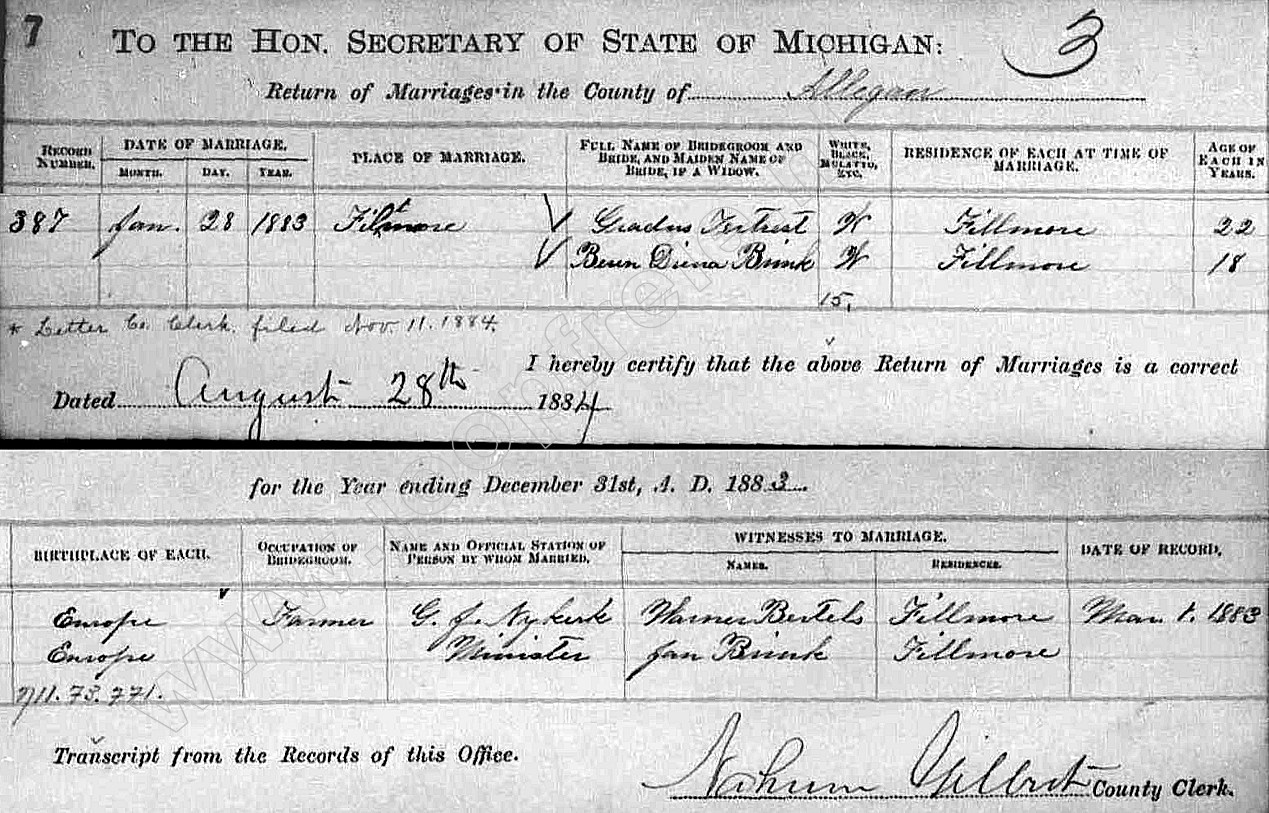 7
3
TO THE HON. SECRETARY OF STATE OF MICHIGAN:
Return of Marriages in the County of Allegan
RECORD NUMBER. DATE OF MARRIAGE. MONTH. DAY. YEAR. PLACE OF MARRIAGE. FULL NAME OF BRIDEGROOM AND BRIDE, AND MAIDEN NAME OF BRIDE, IF A WIDOW. WHITE, BLACK, MULATTO, ETC. RESIDENCE OF EACH AT TIME OF MARRIAGE. AGE OF EACH IN YEARS.
387 Jan. 28 1883 Gradus W Fillmore 22
Diena Brink W Fillmore 18
15,
* Letter Co. Clerk. filed Nov. 11. 1884.
I hereby certify that the above Return of Marriages is a correct
Dated August 28th 1884
for the Year ending December 31st, A. D. 1883.
BIRTHPLACE OF EACH. OCCUPATION OF BRIDEGROOM. NAME AND OFFICIAL STATION OF PERSON BY WHOM MARRIED. WITNESSES TO MARRIAGE. NAMES. RESIDENCES. DATE OF RECORD.
Europe Farmer G. J. Nykerk Warner Bertels Fillmore Mar. 1. 1883
Europe Minister Jan Brink Fillmore
711. 73. 771.
Transcript from the Records of this Office.
Nahum Gilbert County Clerk.